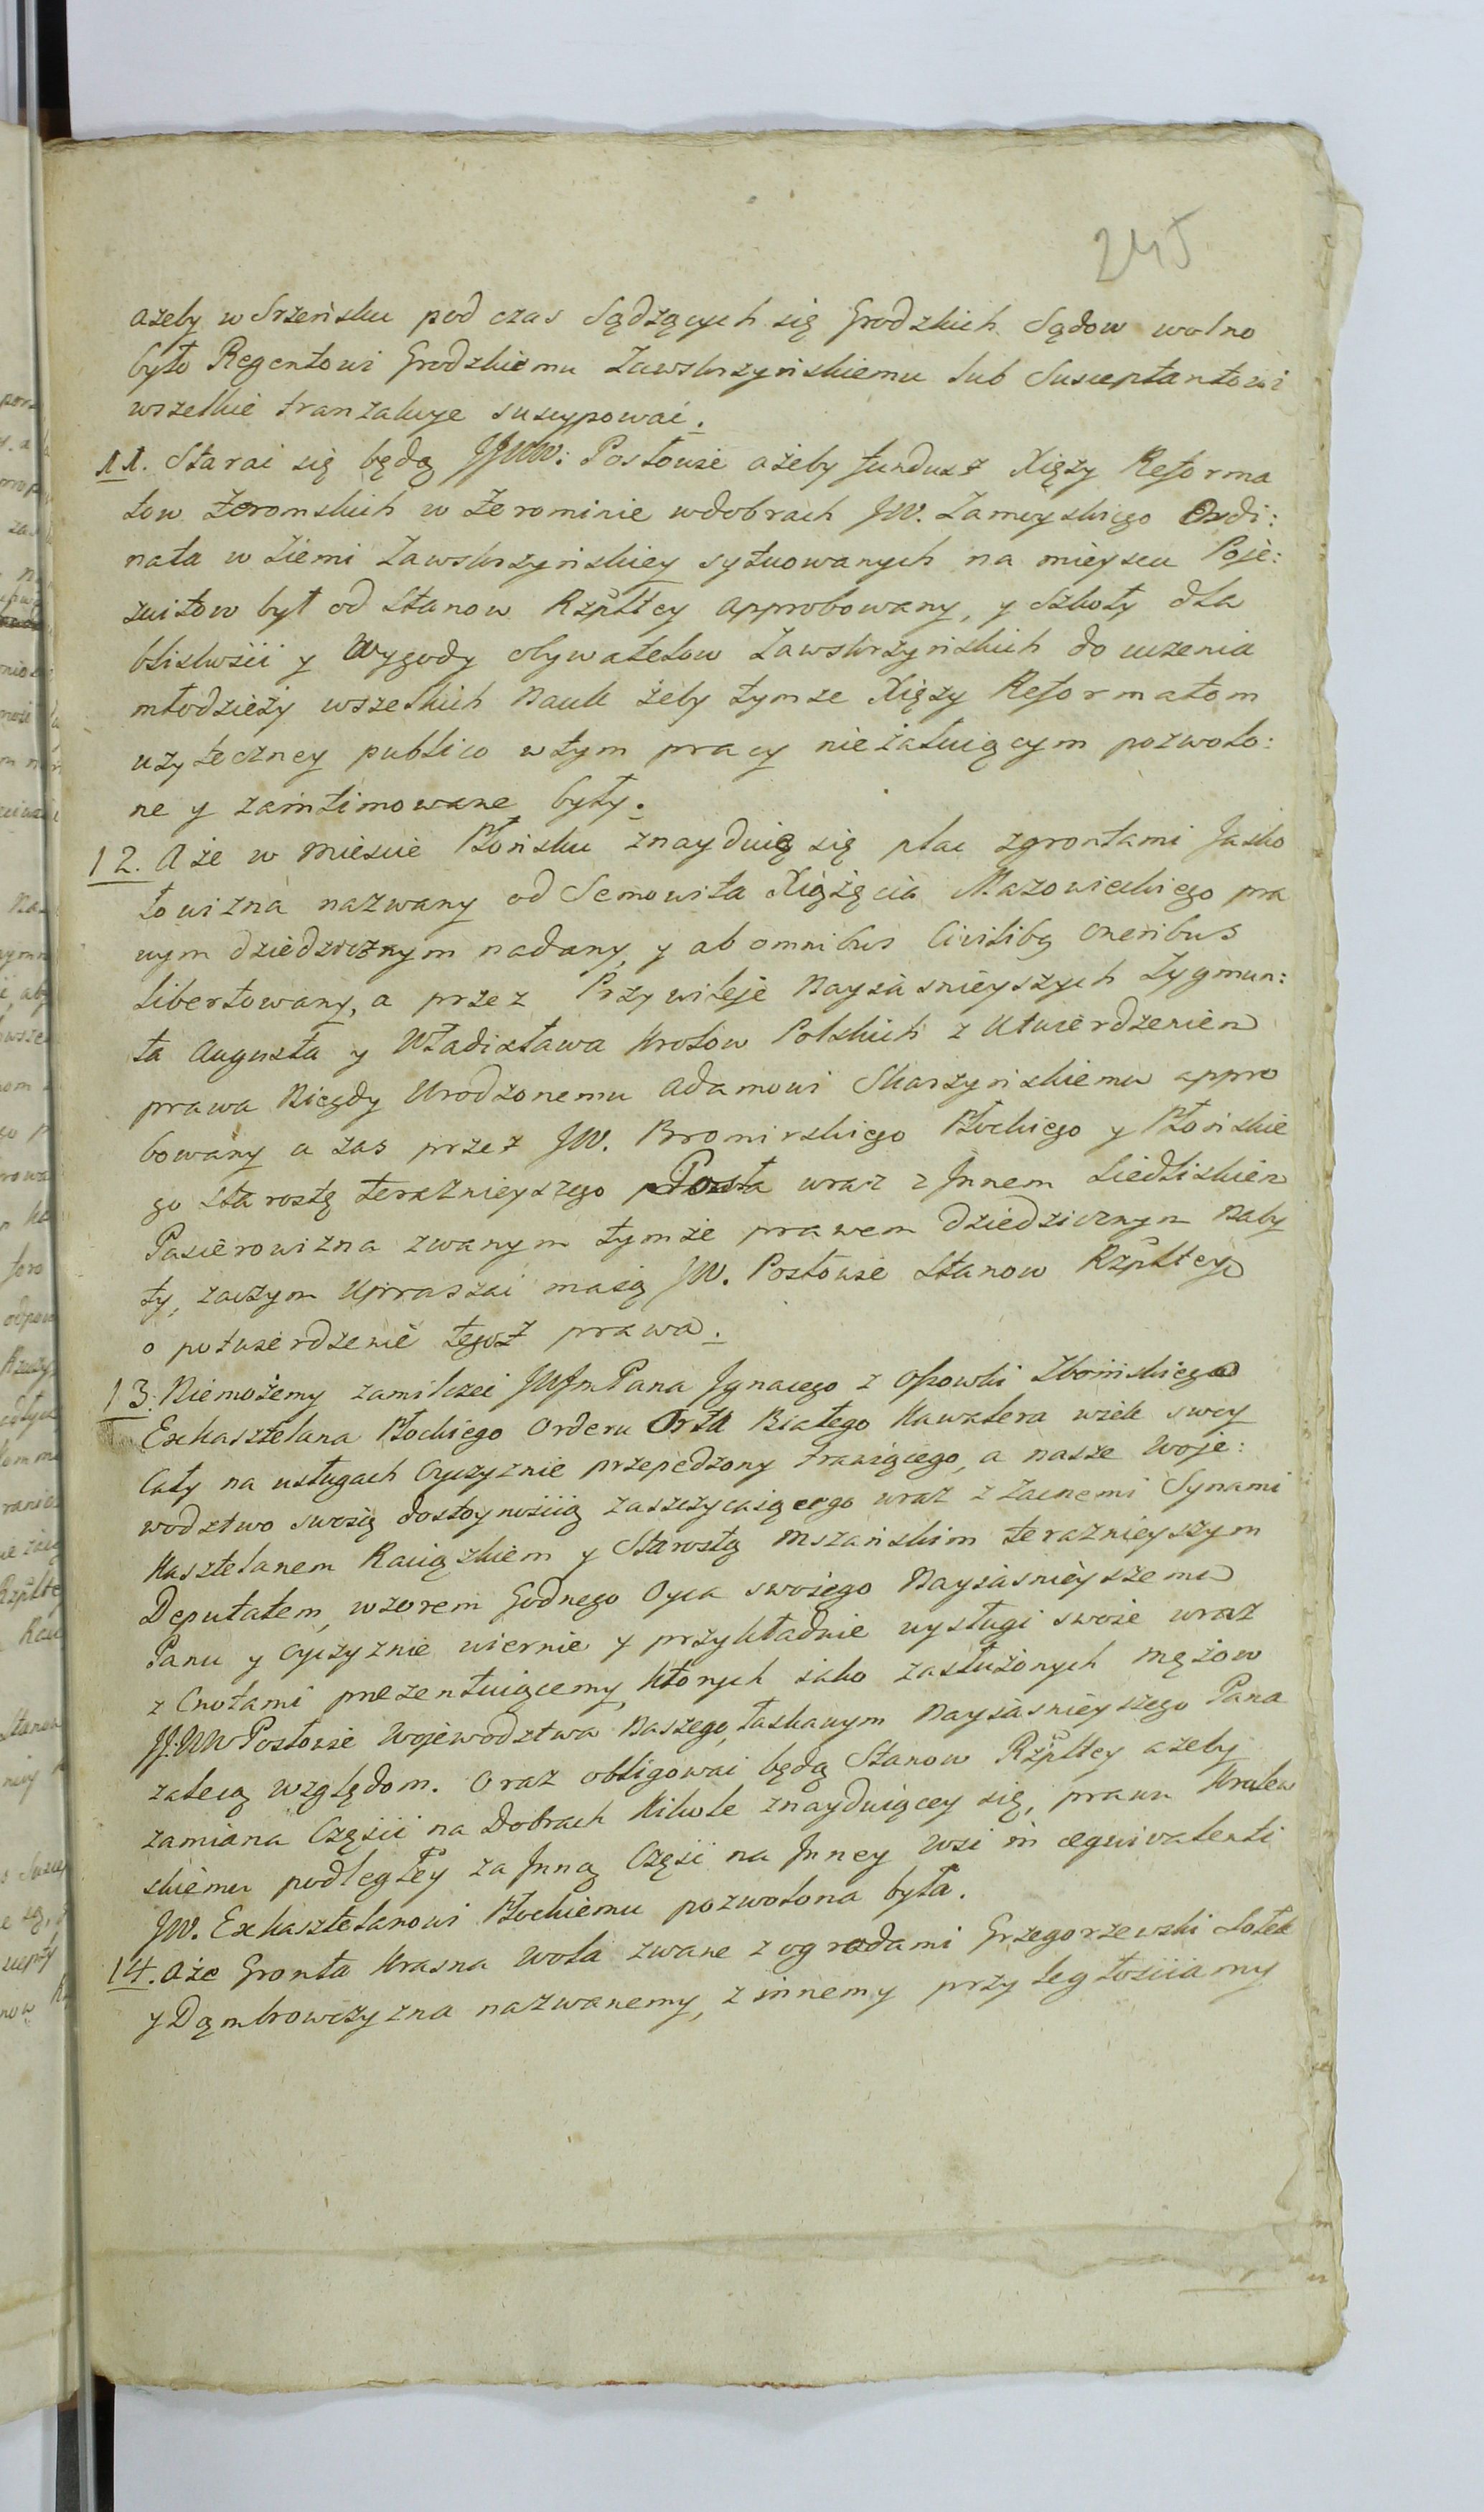 245
ażeby w Srzeńsku pod czas Sądzących się Grodzkich Sądow wolno
było Regentowi Grodzkiemu Zawskrzyńskiemu lub Susceptantowi
wszelkie tranzakcye suscypować.
11. Starać się będą JJWW: Posłowie ażeby fundusz Xięży Reforma
tow Żeromskich w Żerominie w dobrach JW. Zamoyskiego Ordi:
nata w Ziemi Zawskrzyńskiey sytuowanych na mieyscu Poje:
zuitow był od Stanow Rzpltey approbowany, y Szkoły dla
bliskości y Wygody obywatelow Zawskrzyńskich do uczenia
młodzieży wszelkich Nauk żeby tymże Xięży Reformatom
użyteczney publico w tym pracy nieżałuiącym pozwolo:
ne y zaintimowane były.
12. A że w mieście Płońsku znayduię się plac z grontami Jasko
towizna nazwany od Semowita Xiążęcia Mazowieckiego pra
wym dziedzicznym nadany, y ab omnibus Civilibq oneribus
libertowany, a przez Przywileje Nayiasnieyszych Zygmun:
ta Augusta y Władisława Krolow Polskich z Utwierdzeniem
prawa Niegdy Urodzonemu Adamowi Skarzyńskiemu appro
bowany a zas przez JW. Bromirskiego Płockiego y Płońskie
go Starostę teraznieyszego Posła wraz z Innem Siedliskiem
Pasierowizna zwanym tymże prawem dziedzicznym Naby
ty, zaczym Upraszać maią JW. Posłowie Stanow Rzpltey
o potwierdzenie tegoż prawa.
13. Niemożemy zamilczeć JWJmPana Jgnacego z Ossowki Zboińskiego
Exkasztelana Płockiego Orderu Orła Białego Kawalera wiek swoy
Cały na usługach Oyczyznie przepędzony trawiącego, a nasze Woje:
wodztwo swoią dostoynością zaszczycaiącego wraz z Zacnemi Synami
Kasztelanem Raciązkiem y Starostą Mszańskim teraznieyszym
Deputatem, wzorem Godnego Oyca swoiego Nayiasnieyszemu
Panu y Oyczyznie wiernie y przykładnie wysługi swoie wraz
z Cnotami prezentuiącemy, Ktorych iako zasłużonych mężow
JJ.WW Posłowie Wojewodztwa Naszego, łaskawym Nayiasnieyszego Pana
zalecą względom. Oraz obligować będą Stanow Rzpltey ażeby
zamiana Części na Dobrach Kikole znayduiącey się, prawu Krolew
skiemu podległey za Inną Część na Inney Wsi in æquivalenti
JW. Exkasztelanowi Płockiemu pozwolona była.
14. Aże Gronta Krasna Wola zwane z ogrodami Grzegorzewski Lotek
y Dąmbrowczyzna nazwanemy, z innemy przyległościamy